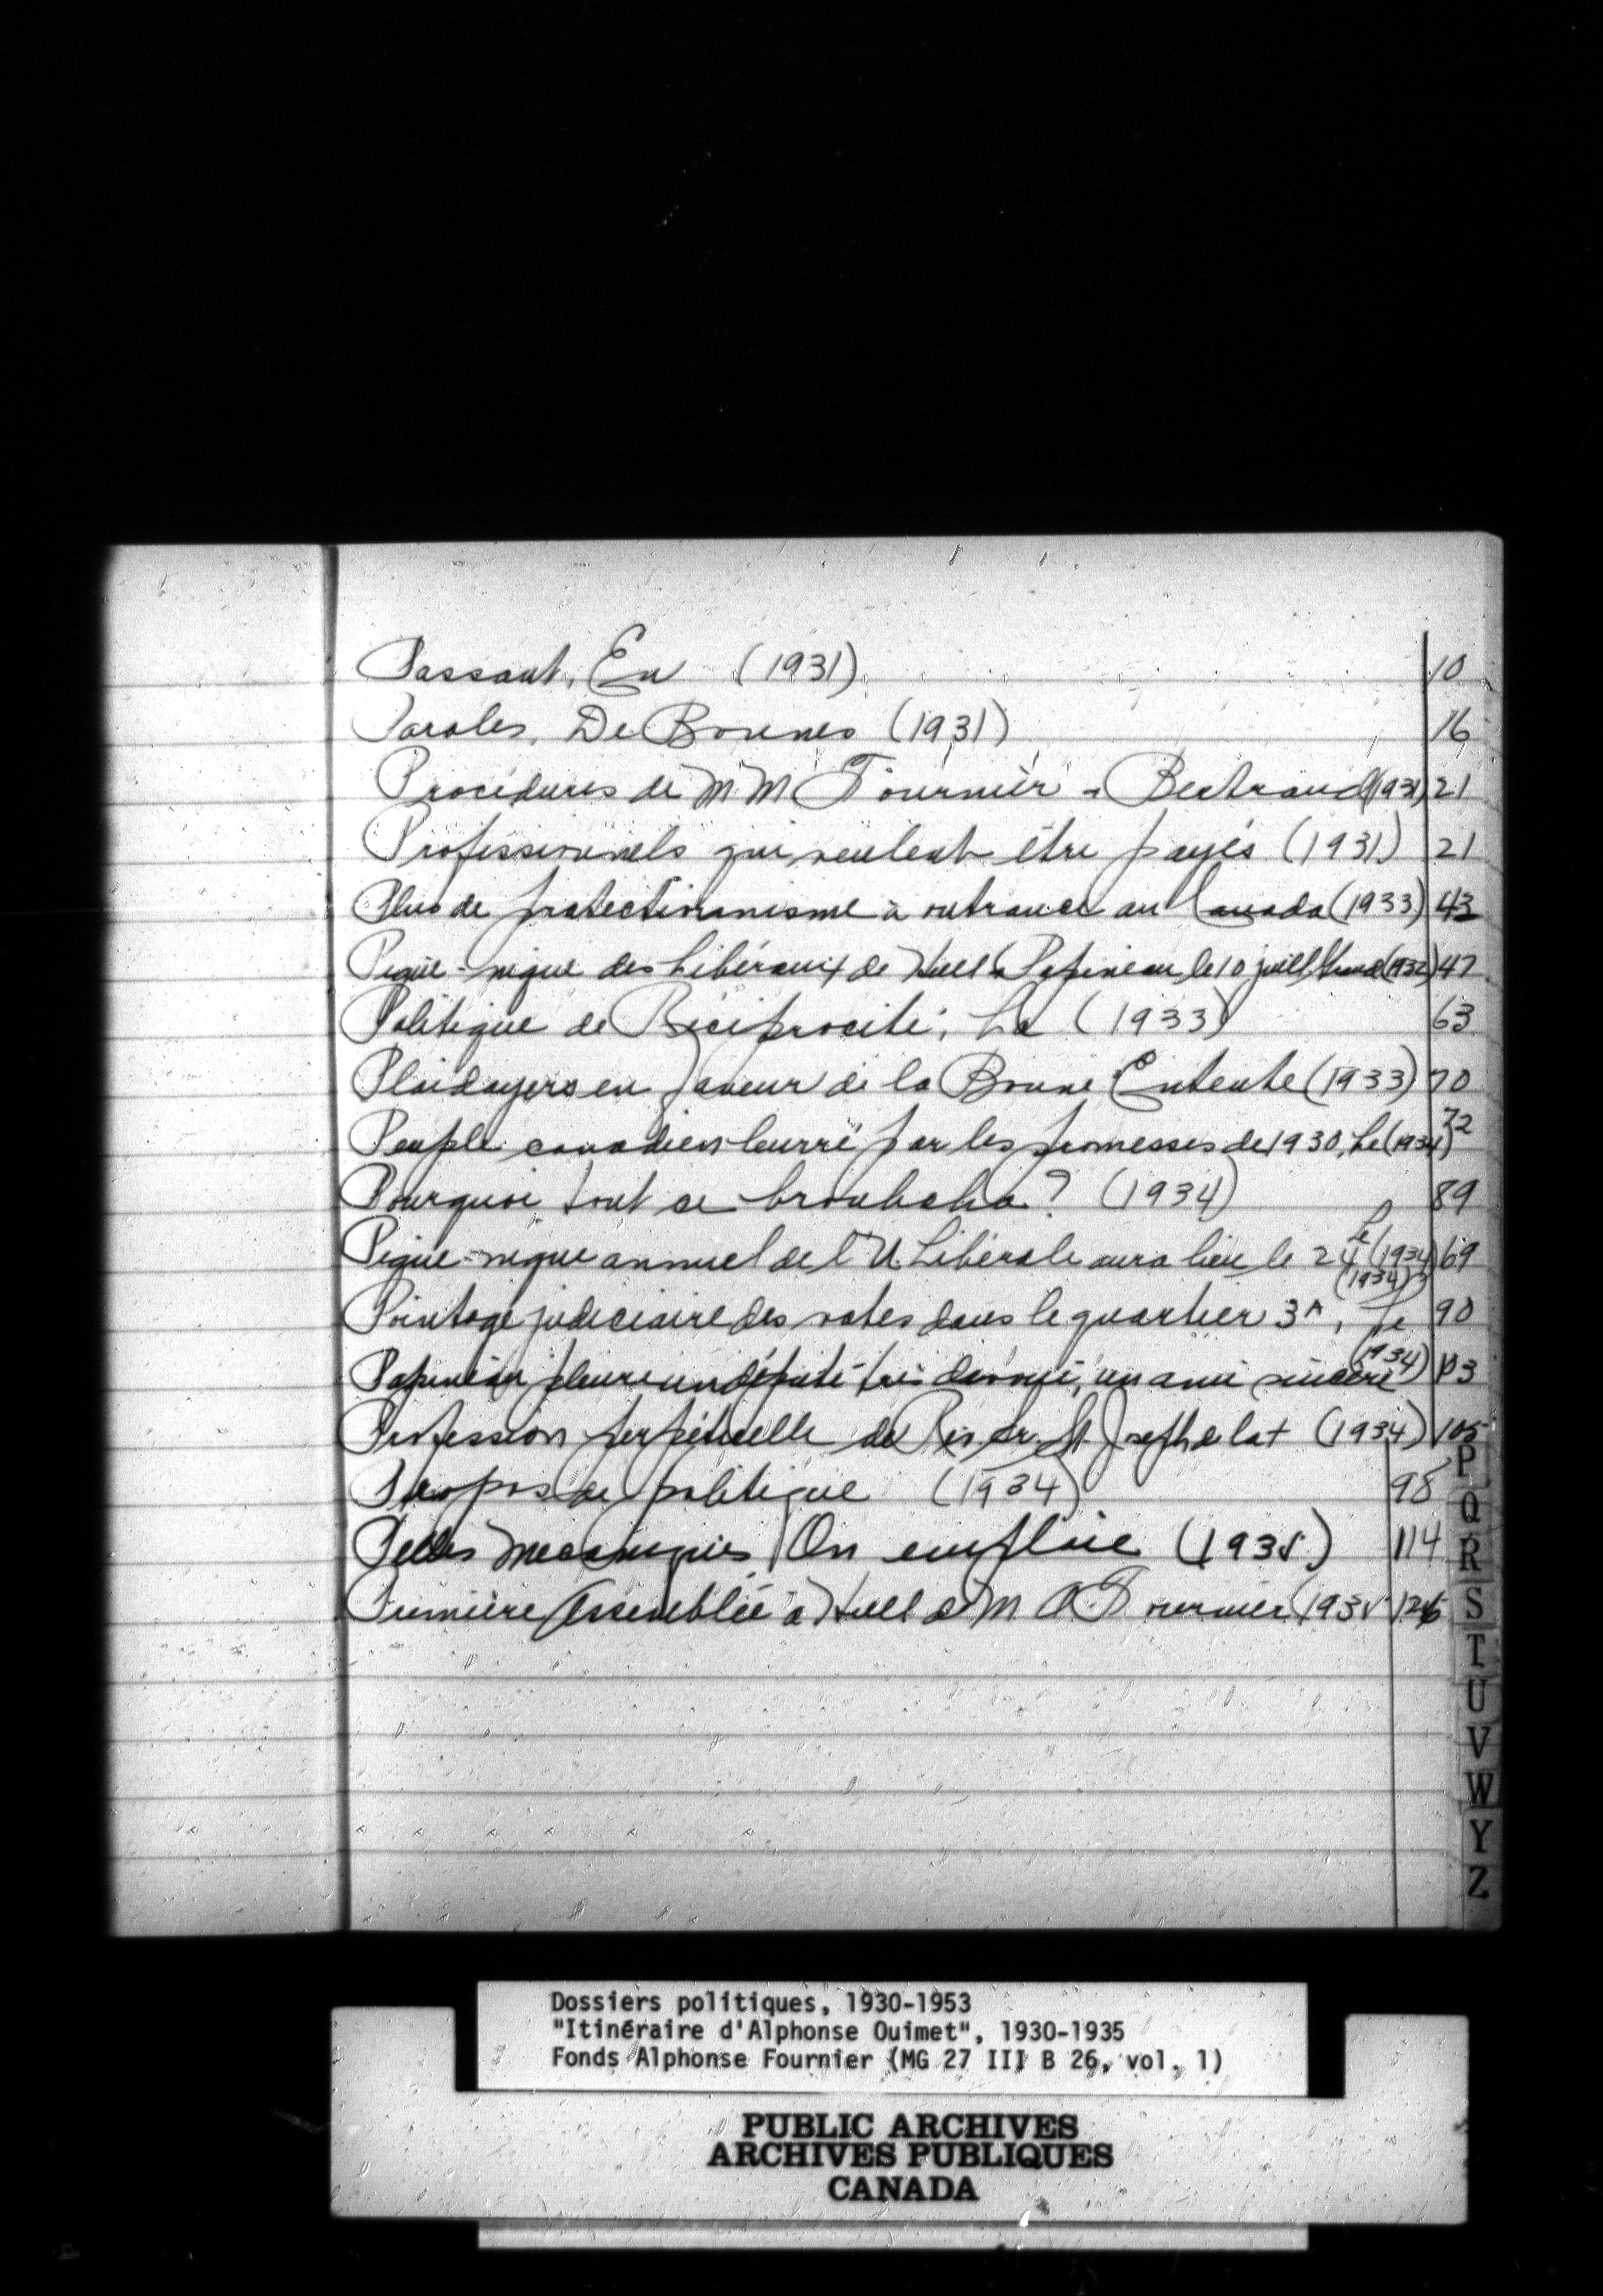 Passant, En (1931) 10
Paroles, De Bonnes (1931) 16
Procédures de M.M Fournier & Bertrand (1931) 21
Professionnels qui veulent être payés (1931) 21
Plus de protectionnisme à outrance au Canada (1933) 43
Pique-nique des Libéraux de Hull & Papineau, le 10 juill, (1932) 47
Politique de Réciprocité, La (1933) 63
Plaidoyers en faveur de la Bonne Entente (1933) 70
Peuple canadien leurré par les promesses de 1930, Le (1934) 72
Pourquoi tout ce brouhaha? (1934) 89
Pique-nique annuel de l'U. Libérale aura lieu le 24 Le (1934) 69
Pointage judiciaire des votes dans le quartier 3A, Le (1934) 90
Papineau pleure un député très dévoué, un ami sincère (1934)
Profession perpétuelle de Rév. Sr. St Joseph de la + (1934) 105
Propos de politique (1934) 98
Pelles mécaniques, On emploie (1935) 114
Première Assemblée à Hull de M A Fournier (1935 126
P
Q
R
S
T
U
V
W
Y
Z
Dossiers politiques, 1930-1953
"Itinéraire d'Alphonse Ouimet", 1930-1935
Fonds Alphonse Fournier (MG 27 III B 26, vol. 1)
PUBLIC ARCHIVES
ARCHIVES PUBLIQUES
CANADA